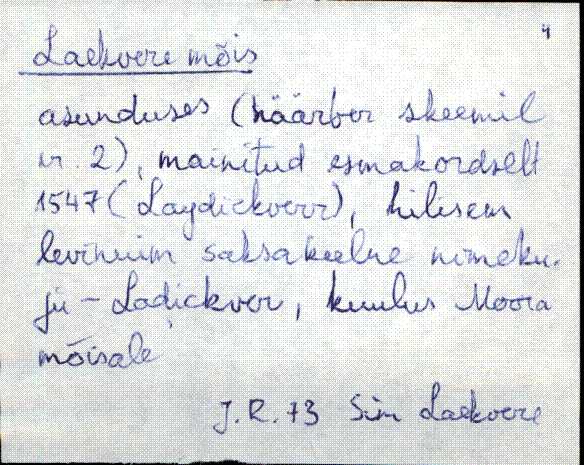 4
Laekvere mõis
asunduses (häärber skeemil
nr. 2), mainitud esmakordselt
1547 (Laydickverr), hilisem
levinuim saksakeelne nimeku-
ju - Ladickver, kuulus Moora
mõisale
J.R. 73 Sim Laekvere